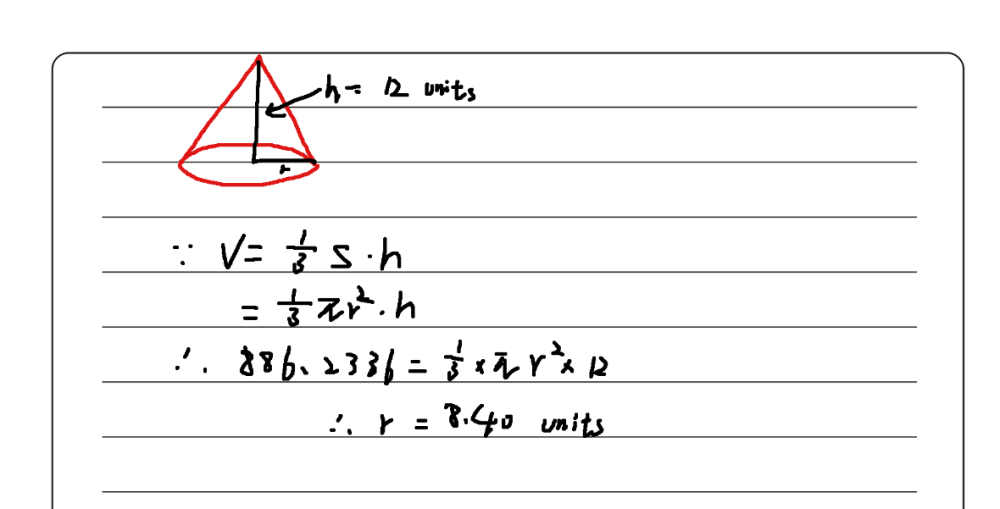 h = 12 units
r
∵ V = 1/3 S · h
= 1/3 πr² · h
∴ 886.2336 = 1/3 × π r² × 12
∴ r = 8.40 units